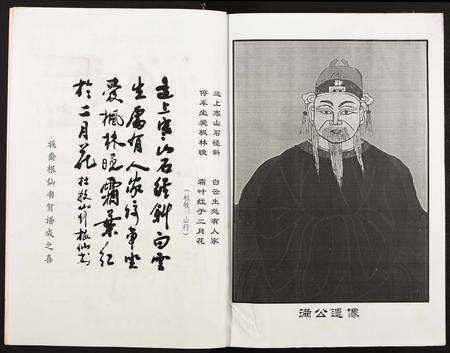 滿公遺像
远上寒山石径斜　白云生处有人家
停车坐爱枫林晚　霜叶红于二月花
(杜牧:山行)
远上寒山石径斜白云
生處有人家停车坐
爱楓林晚霜葉红
於二月花 杜牧山行根仙书
族裔根仙书贺谱成之喜